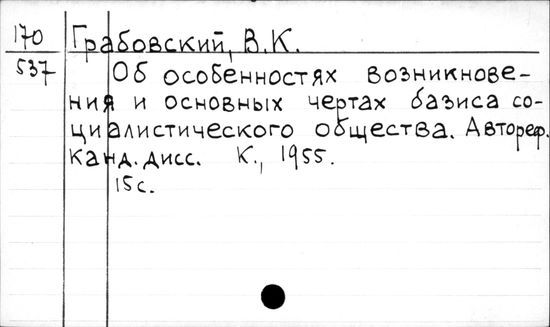 170 Грабовский, В.К.
537 Об особенностях возникнове-
ния и основных чертах базиса со-
циалистического общества. Автореф.
канд. дисс. К., 1955.
15с.